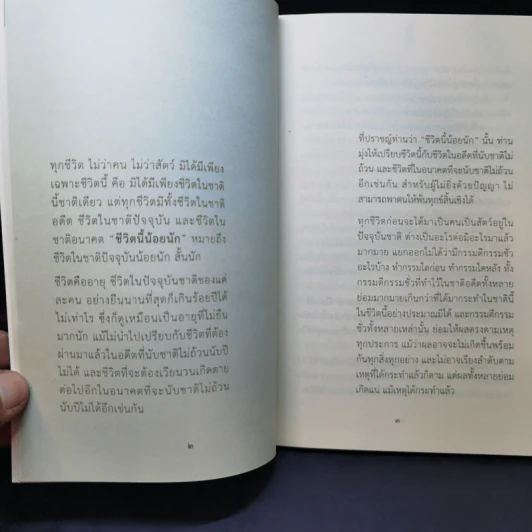 ทุกชีวิต ไม่ว่าคน ไม่ว่าสัตว์ มิได้มีเพียง
เฉพาะชีวิตนี้ คือ มิได้มีเพียงชีวิตในชาติ
นี้ชาติเดียว แต่ทุกชีวิตมีทั้งชีวิตในชาติ
อดีต ชีวิตในชาติปัจจุบัน และชีวิตใน
ชาติอนาคต “ชีวิตนี้น้อยนัก” หมายถึง
ชีวิตในชาติปัจจุบันน้อยนัก สั้นนัก
ชีวิตคืออายุ ชีวิตในปัจจุบันชาติของแต่
ละคน อย่างยืนนานที่สุดก็เกินร้อยปีได้
ไม่เท่าไร ซึ่งก็ดูเหมือนเป็นอายุที่ไม่ยืน
มากนัก แม้ไม่นำไปเปรียบกับชีวิตที่ต้อง
ผ่านมาแล้วในอดีตที่นับชาติไม่ถ้วนนับปี
ไม่ได้ และชีวิตที่จะต้องเวียนวนเกิดตาย
ต่อไปอีกในอนาคตที่จะนับชาติไม่ถ้วน
นับปีไม่ได้อีกเช่นกัน
๒
ที่ปราชญ์ท่านว่า “ชีวิตนี้น้อยนัก” นั้น ท่าน
มุ่งให้เปรียบชีวิตนี้กับชีวิตในอดีตที่นับชาติไม่
ถ้วน และชีวิตในอนาคตที่จะนับชาติไม่ถ้วน
อีกเช่นกัน สำหรับผู้ไม่ยิ่งด้วยปัญญา ไม่
สามารถพาตนให้พ้นทุกข์สิ้นเชิงได้
ทุกชีวิตก่อนจะได้มาเป็นคนเป็นสัตว์อยู่ใน
ปัจจุบันชาติ ต่างเป็นอะไรต่อมิอะไรมาแล้ว
มากมาย แยกออกไม่ได้ว่ามีกรรมดีกรรมชั่ว
อะไรบ้าง ทำกรรมใดก่อน ทำกรรมใดหลัง ทั้ง
กรรมดีกรรมชั่วที่ทำไว้ในชาติอดีตทั้งหลาย
ย่อมมากมายเกินกว่าที่ได้มากระทำในชาตินี้
ในชีวิตนี้อย่างประมาณมิได้ และกรรมดีกรรม
ชั่วทั้งหลายเหล่านั้น ย่อมให้ผลตรงตามเหตุ
ทุกประการ แม้ว่าผลอาจจะไม่เกิดขึ้นพร้อม
กันทุกสิ่งทุกอย่าง และไม่อาจเรียงลำดับตาม
เหตุที่ได้กระทำแล้วก็ตาม แต่ผลทั้งหลายย่อม
เกิดแน่ แม้เหตุได้กระทำแล้ว
๓